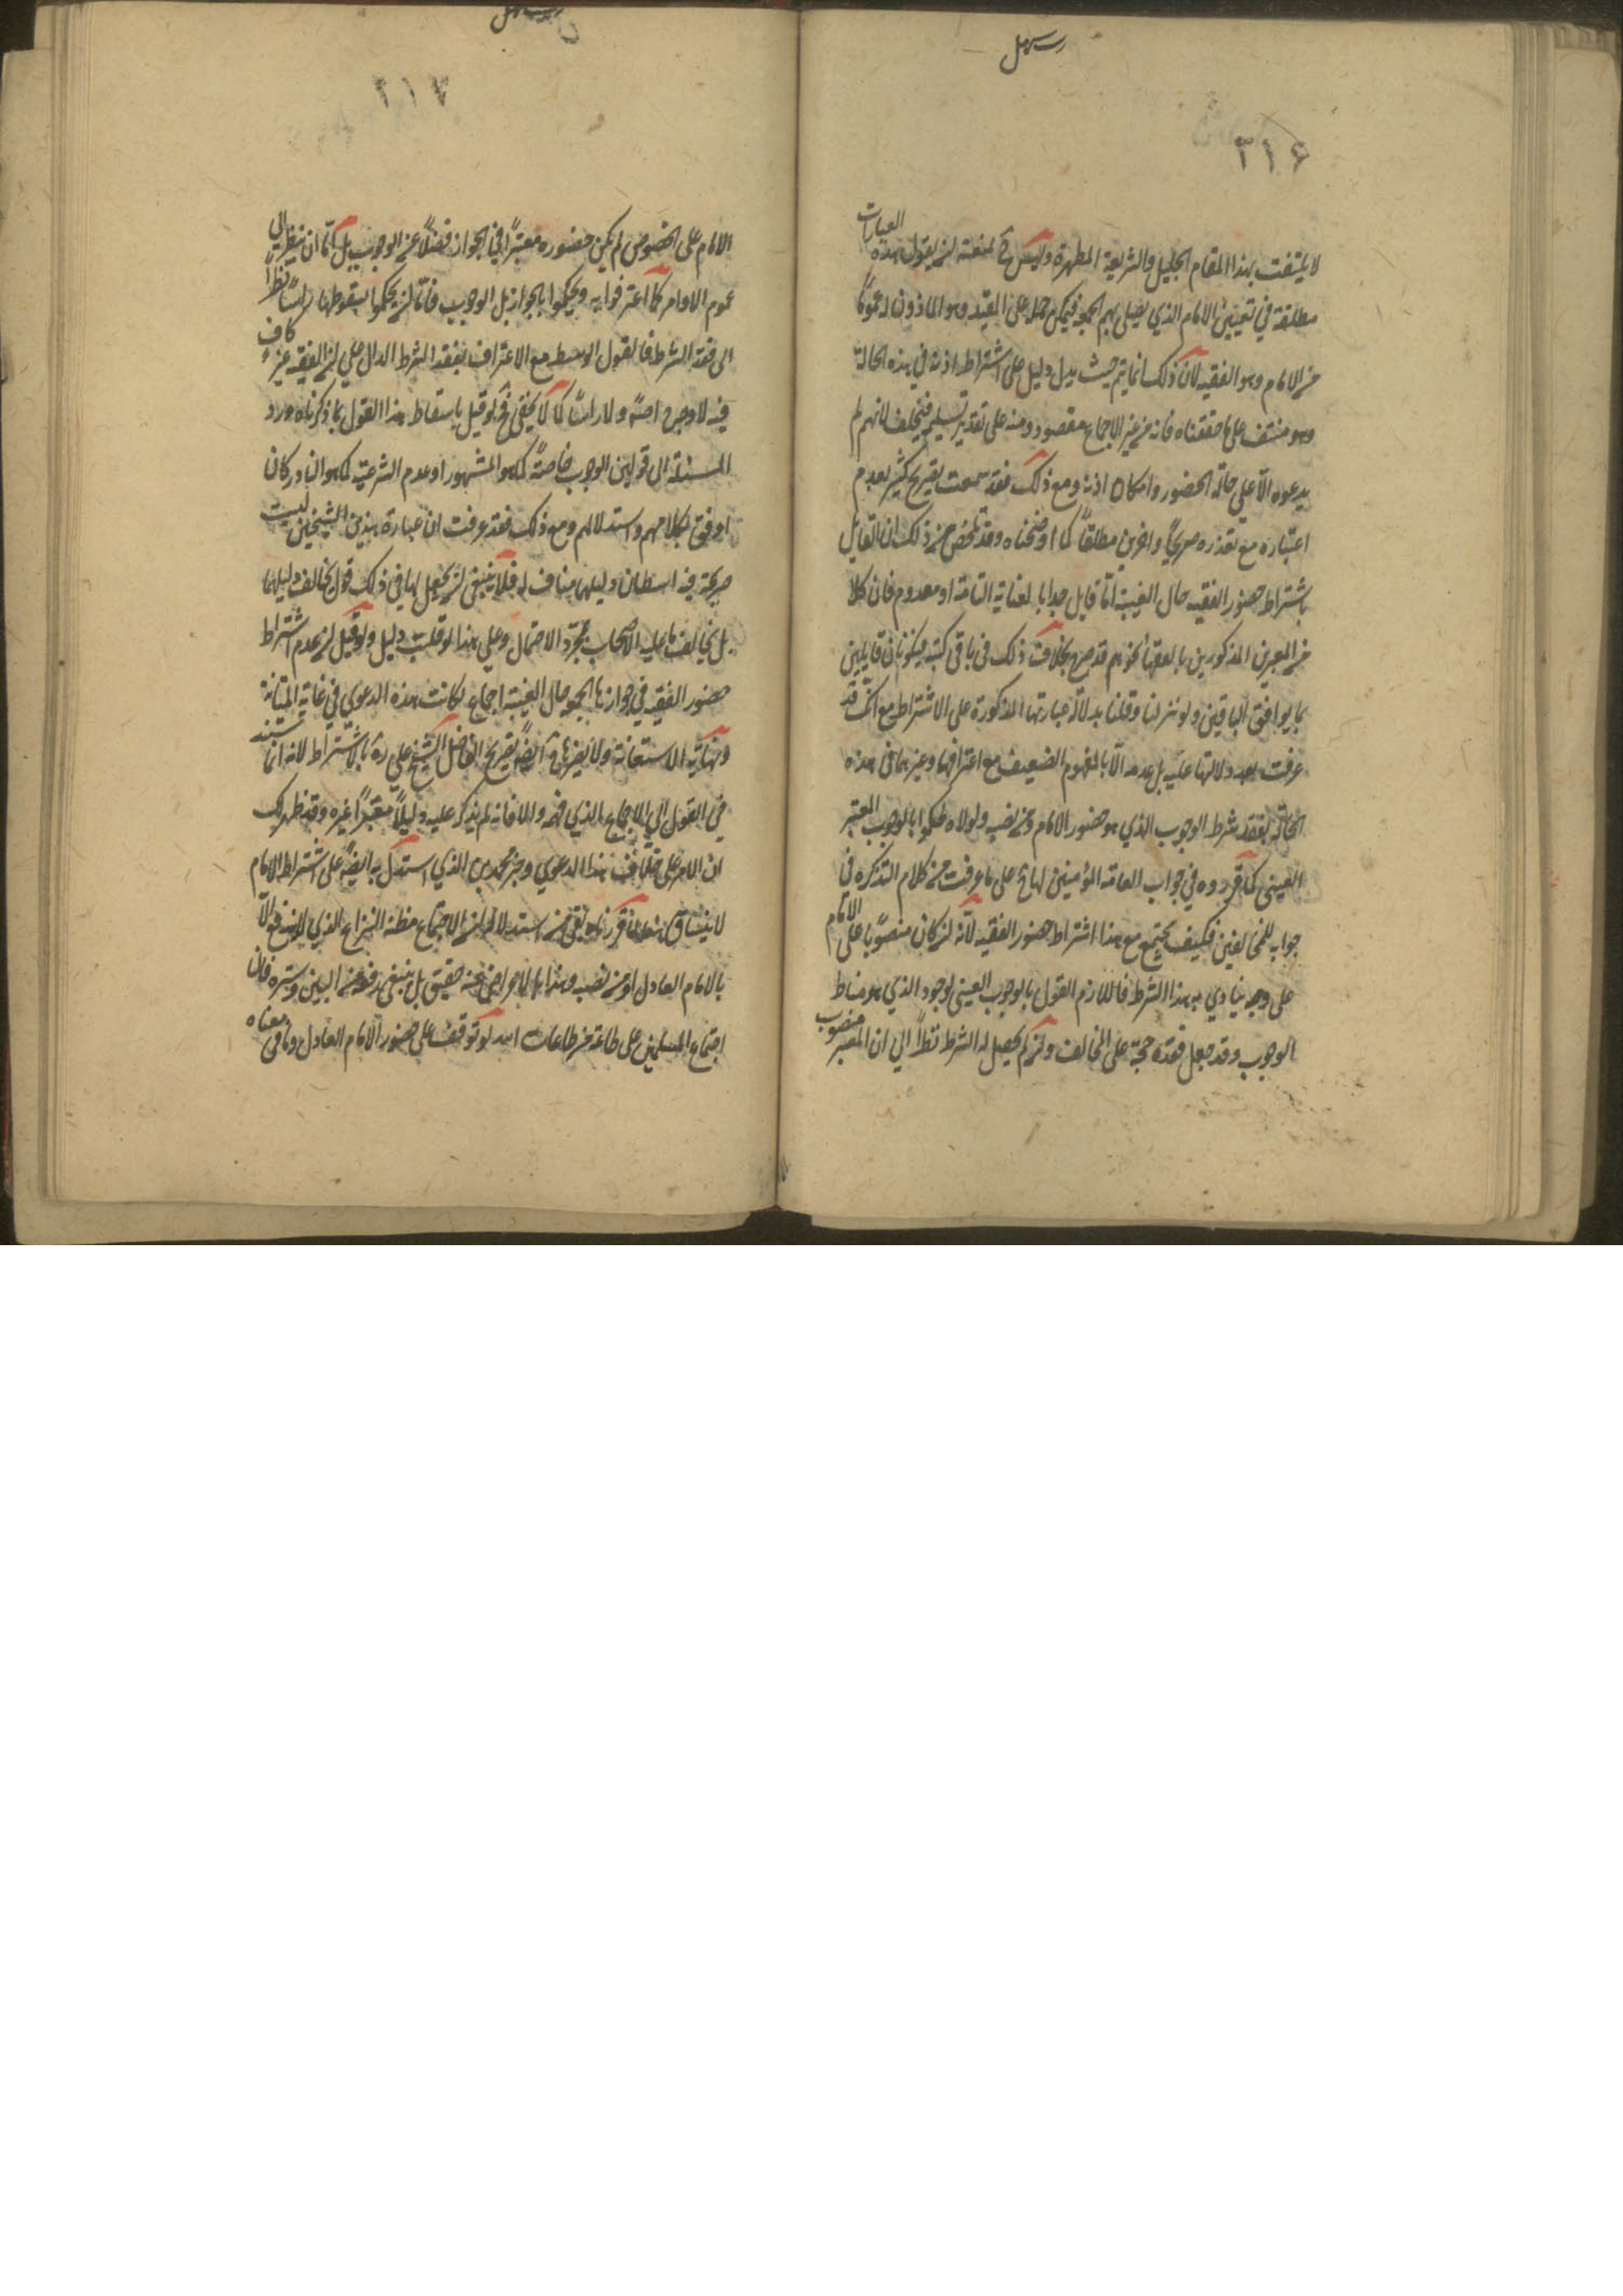 رسهل
٣١٦
لا يلتفت بهذا المقام الجليل والشريعة المطهرة وليس لمنعته ان يقول بهذه العبارات
مطلقة في تعيين الامام الذي يصلي بهم الجمعة فيمكن حمله على المقيد وهو الماذون له عموما
من الامام وهو الفقيه لان ذلك انما يتم حيث يدل دليل على اشتراط اذنه في هذه الحالة
وهو منتف على ما حققناه فانه من غير الاجماع مقصود ومنه على تقدير تسليمه فيختلف لانهم لم
يدعوه الا على حالة الحضور وامكان اذنه ومع ذلك فقد سمعت تصريح كثير بعدم
اعتباره مع تعذره صريحا واخرين مطلقا كما اوضحناه وقد تلخص من ذلك ان القايل
باشتراط حضور الفقيه حال الغيبة اما قايل جدا بالغاية التامة او معدوم فان كلا
من المعبرين المذكورين بالفقهاء نحوهم قد صرح بخلاف ذلك في باقي كتبه فيكونان قايلين
بما يوافق الباقين ولو تنزلنا وقلنا بدلالة عبارتها المذكورة على الاشتراط مع انك قد
عرفت بعد دلالتها عليه بل عدمه الا بالمفهوم الضعيف مع اعترافهما وغيرهما في هذه
الحالة بفقد شرط الوجوب الذي هو حضور الامام ومن نصبه ولولاه لحكموا بالوجوب المعتبر
العيني كما قرروه في جواب العامة المؤمنين لها على ما عرفت من كلام التذكرة في
جوابه للمخالفين فكيف يجتمع مع هذا اشتراط حضور الفقيه لانه ان كان منصوبا على الامام
على وجه يتادي به هذا الشرط فاللازم القول بالوجوب العيني لوجود الذي هو مناط
الوجوب وقد جعل فقده حجة على المخالف وان لم يحصل له الشرط نظرا الى ان المعتبر منصوب
٢١٧
الامام على الخصوص لم يكن حضوره معتبرا في الجواز فضلا عن الوجوب بل اما ان ينظر الى
عموم الاوامر كما اعترفوا به ويحكموا بالجواز بل الوجوب فاما ان يحكموا بسقوطها راسا نظرا
الى فقد الشرط فالقول الوسط مع الاعتراف بفقد الشرط الدال على ان الفقيه غير كاف
فيه لا وجه له اصلا ولا راسا كما لا يخفى فلو قيل باسقاط هذا القول بما ذكرناه ورد
المسئلة الى قولين الوجوب خاصة كما هو المشهور او عدم الشرعية كما هو النادر كان
اوفق بكلامهم واستدلالهم ومع ذلك فقد عرفت ان عبارة هذين الشيخين ليست
صريحة فيه وان دليلهما مناف له فلا ينبغي ان يجعل لهما في ذلك قول يخالف دليلهما
بل يخالف ما عليه الاصحاب بمجرد الاحتمال وعلى هذا لو قلبت دليل ولو قيل ان عدم اشتراط
حضور الفقيه في جوازها الجمعة حال الغيبة اجماع لكانت هذه الدعوى في غاية المتانة
ونهاية الاستعانة ولا يضرها ايضا تصريح الفاضل الشيخ علي ره بالاشتراط لانه انما استند
في القول الى الاجماع الذي فهمه والا فانه لم يذكر عليه دليلا معتبرا غيره وقد ظهر لك
ان الامر على خلاف هذا الدعوى وخبر محمد بن الذي استدل به ايضا على اشتراط الامام
لا ينساق هنا لما قررناه بقي من استدلاله ان الاجتماع مظنة النزاع الذي لا يندفع الا
بالامام العادل او من نصبه وهذا بالاعراض عنه حقيق بل ينبغي رفعه من البين وستره فان
اجتماع المسلمين على طاعة من طاعات الله لو توقف على حضور الامام العادل وما في معناه